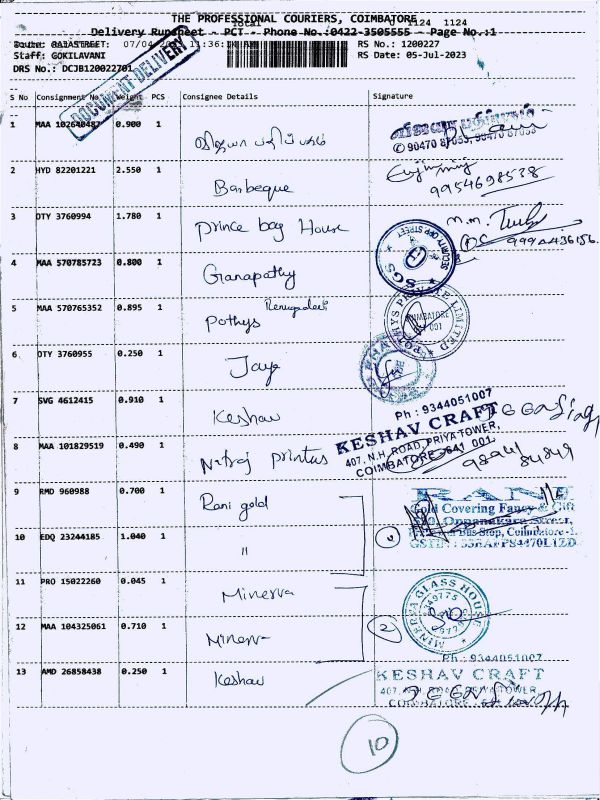 THE PROFESSIONAL COURIERS, COIMBATORE
Total 1124 1124
Delivery Runsheet ~ PCT - Phone No.:0422-3505555 - Page No.:1
RAJASTREET: 07/04 11:36: RS No.: 1200227
Staff: GOKILAVANI RS Date: 05-Jul-2023
DRS No.: DCJB120022701
DOCUMENT DELIVERY
S No Consignment No Weight PCS Consignee Details Signature
1 MAA 102640487 0.900 1 வித்யா பதிப்பகம்
90470 87053, 90470 87053
2 HYD 82201221 2.550 1 Barbeque
9954698538
3 OTY 3760994 1.780 1 Prince bag House
SECURITY OPP STREET
SGS
4 MAA 570785723 0.800 1 Ganapathy
5 MAA 570765352 0.895 1 Pothys Renugadevi
POTHYS PRIVATE LIMITED
COIMBATORE
001
6 OTY 3760955 0.250 1 Jaya
7 SVG 4612415 0.910 1 Keshav
Ph : 9344051007
KESHAV CRAFT
407, N.H. ROAD, PRIYA TOWER,
COIMBATORE - 641 001.
8 MAA 101829519 0.490 1 Nitraj printers
9 RMD 960988 0.700 1 Rani gold
RANI
Gold Covering Fancy & Gift
Oppanakara Street,
Bus Stop, Coimbatore - 1.
10 EDQ 23244185 1.040 1 "
11 PRO 15022260 0.045 1 Minerva
MINERVA GLASS HOUSE
12 MAA 104325061 0.710 1 Minerva
2
13 AMD 26858438 0.250 1 Keshav
Ph : 9344051007
KESHAV CRAFT
407, N.H. ROAD, PRIYA TOWER,
COIMBATORE - 641 001.
10